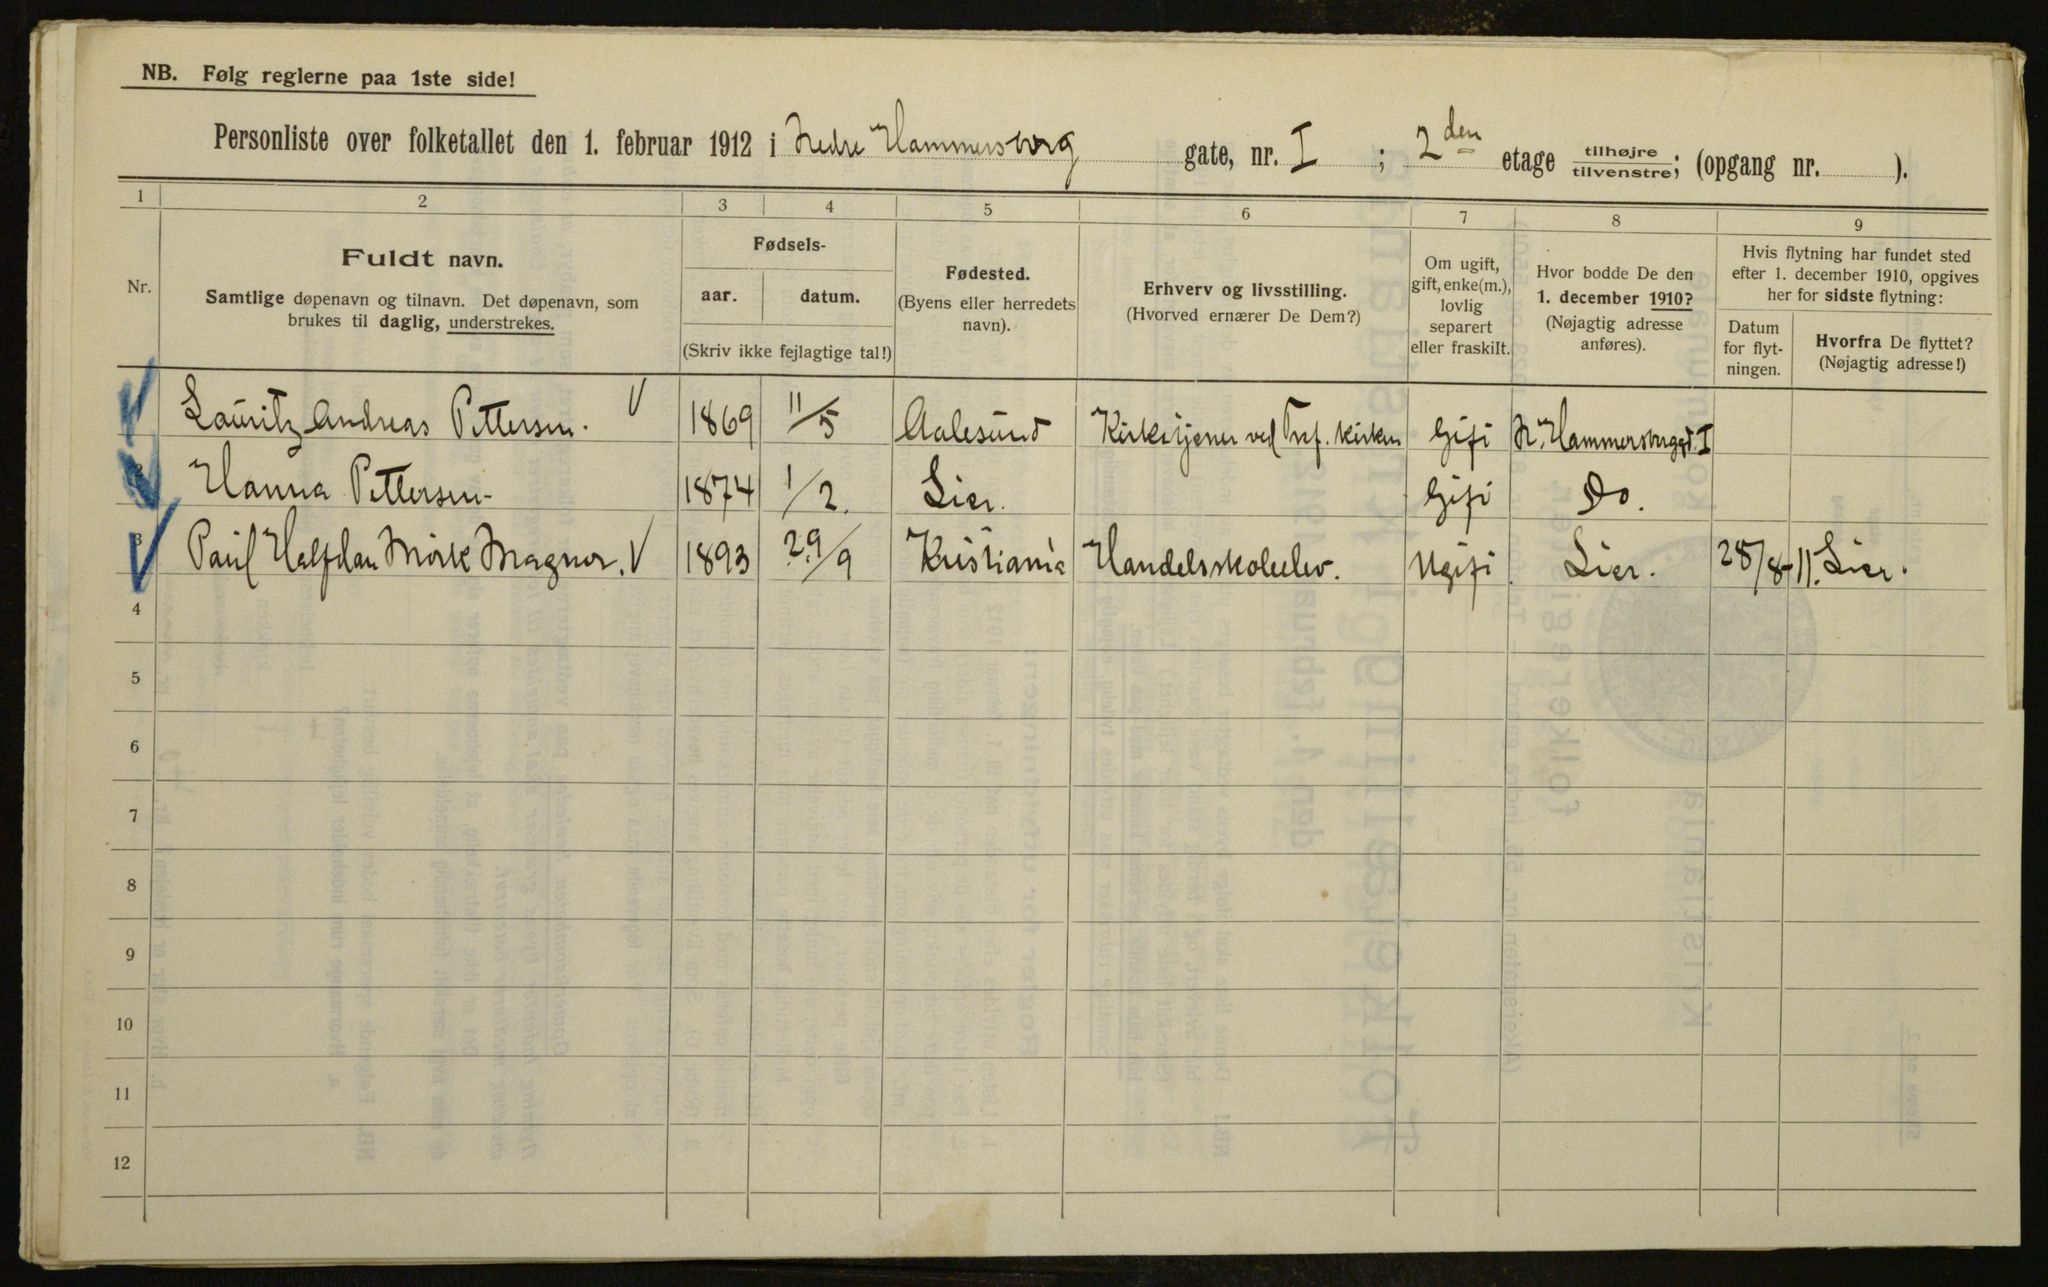 NB. Følg reglerne paa 1ste side!
Personliste over folketallet den 1. februar 1912 i Nedre Hammersborg gate, nr. I ; 2den etage tilhøjre tilvenstre; (opgang nr. ).
1 2 3 4 5 6 7 8 9
Nr.
Fuldt navn.
Samtlige døpenavn og tilnavn. Det døpenavn, som
brukes til daglig, understrekes.
Fødsels-
aar. datum.
(Skriv ikke fejlagtige tal!)
Fødested.
(Byens eller herredets
navn).
Erhverv og livsstilling.
(Hvorved ernærer De Dem?)
Om ugift,
gift, enke(m.),
lovlig
separert
eller fraskilt.
Hvor bodde De den
1. december 1910?
(Nøjagtig adresse
anføres).
Hvis flytning har fundet sted
efter 1. december 1910, opgives
her for sidste flytning:
Datum
for flyt-
ningen.
Hvorfra De flyttet?
(Nøjagtig adresse!)
Lauritz Andreas Pettersen. 1869 11/5 Aalesund Kirketjener ved Tref. kirken Gift N. Hammersborggt. I
2 Hanna Pettersen 1874 1/2. Lier. Gift Do.
3 Paul Halfdan Mørk Magnor. 1893 29/9 Kristiania Handelsskoleelev. Ugift Lier. 28/8-11. Lier.
4
5
6
7
8
9
10
11
12